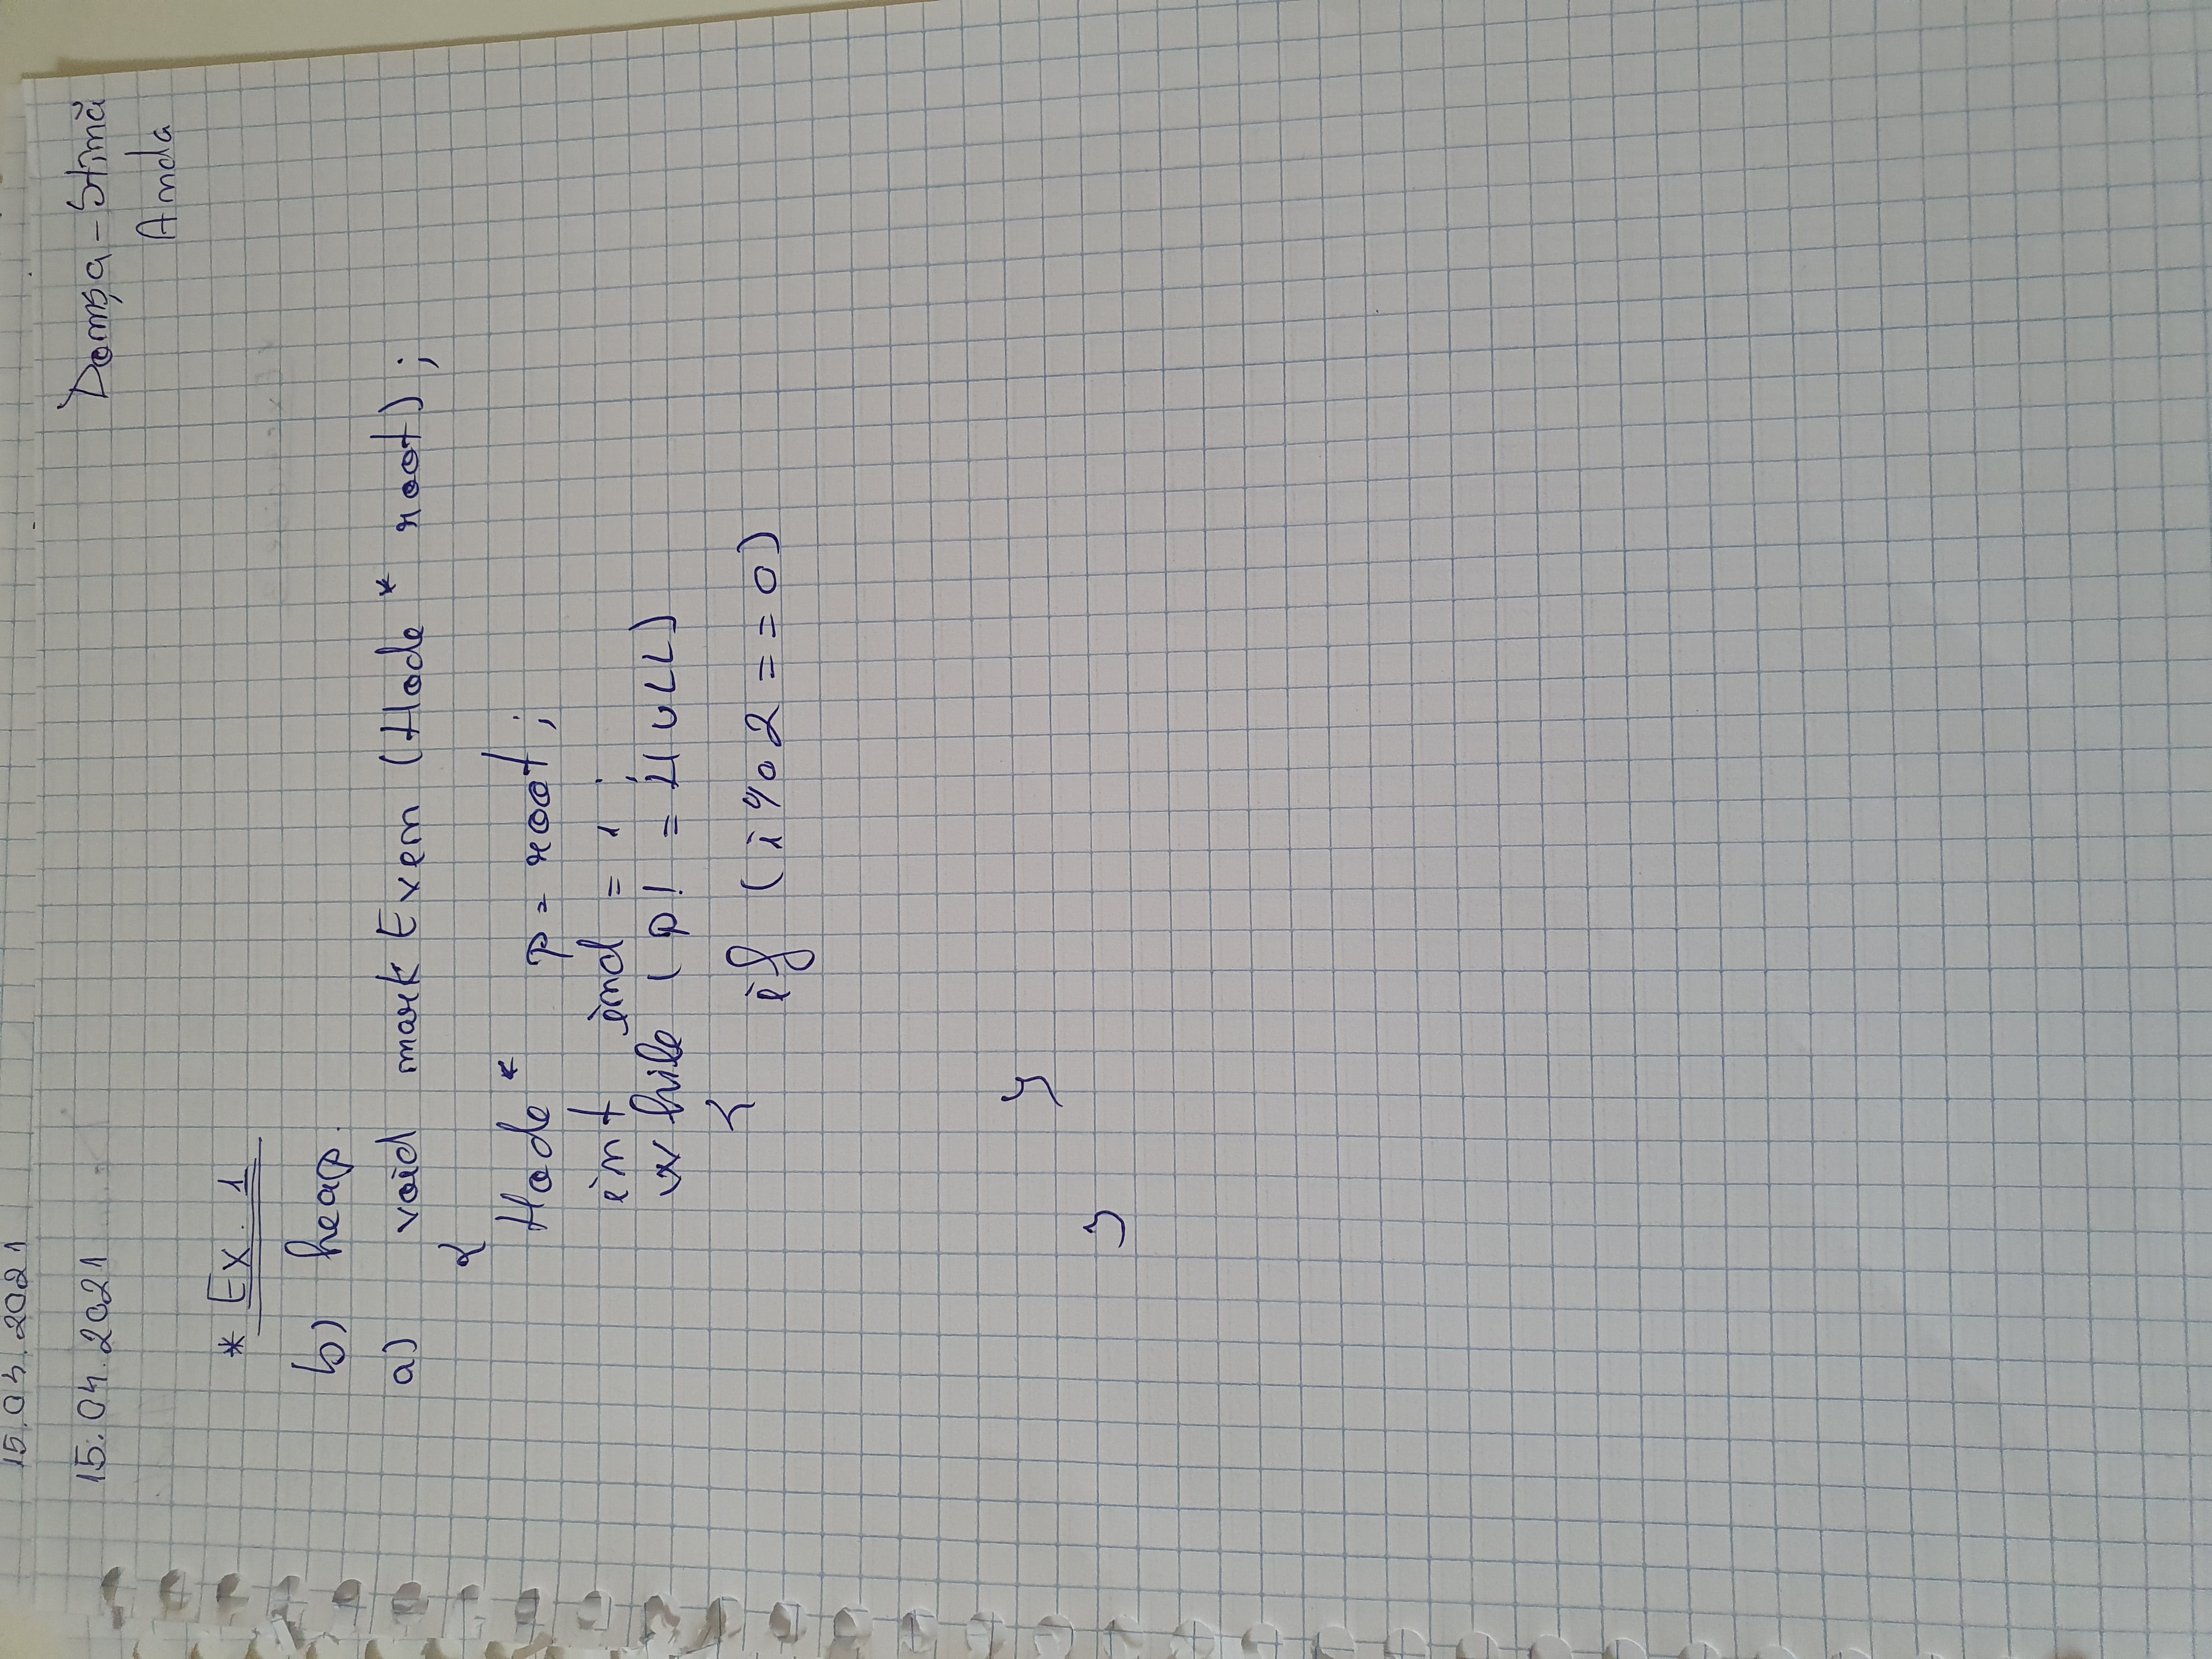 15.04.2021
15.04.2021
Domșa-Stînă
Anda
* Ex. 1
b) heap.
a) void mark Even (Node * root);
{
Node * p = root;
int ind = 1;
while (p! = NULL)
{
if (i%2 == 0)
}
}